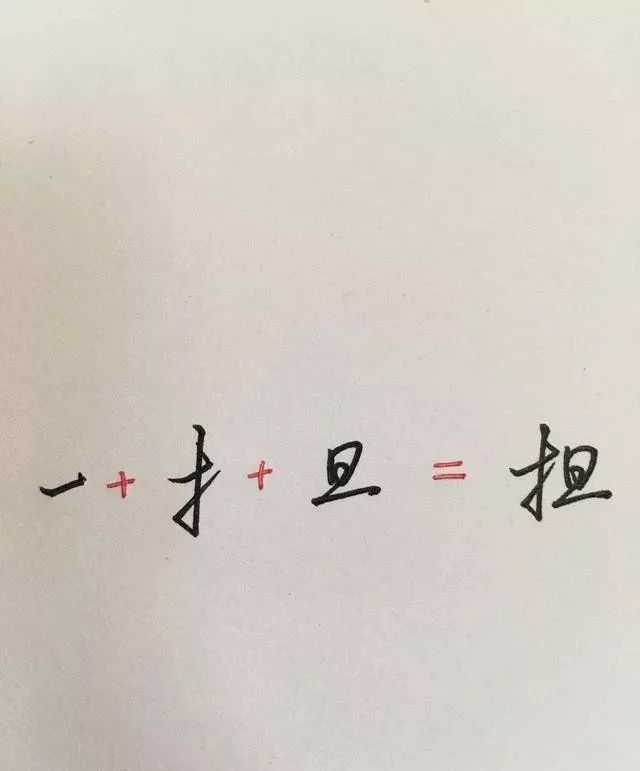 一 + 扌 + 旦 = 担